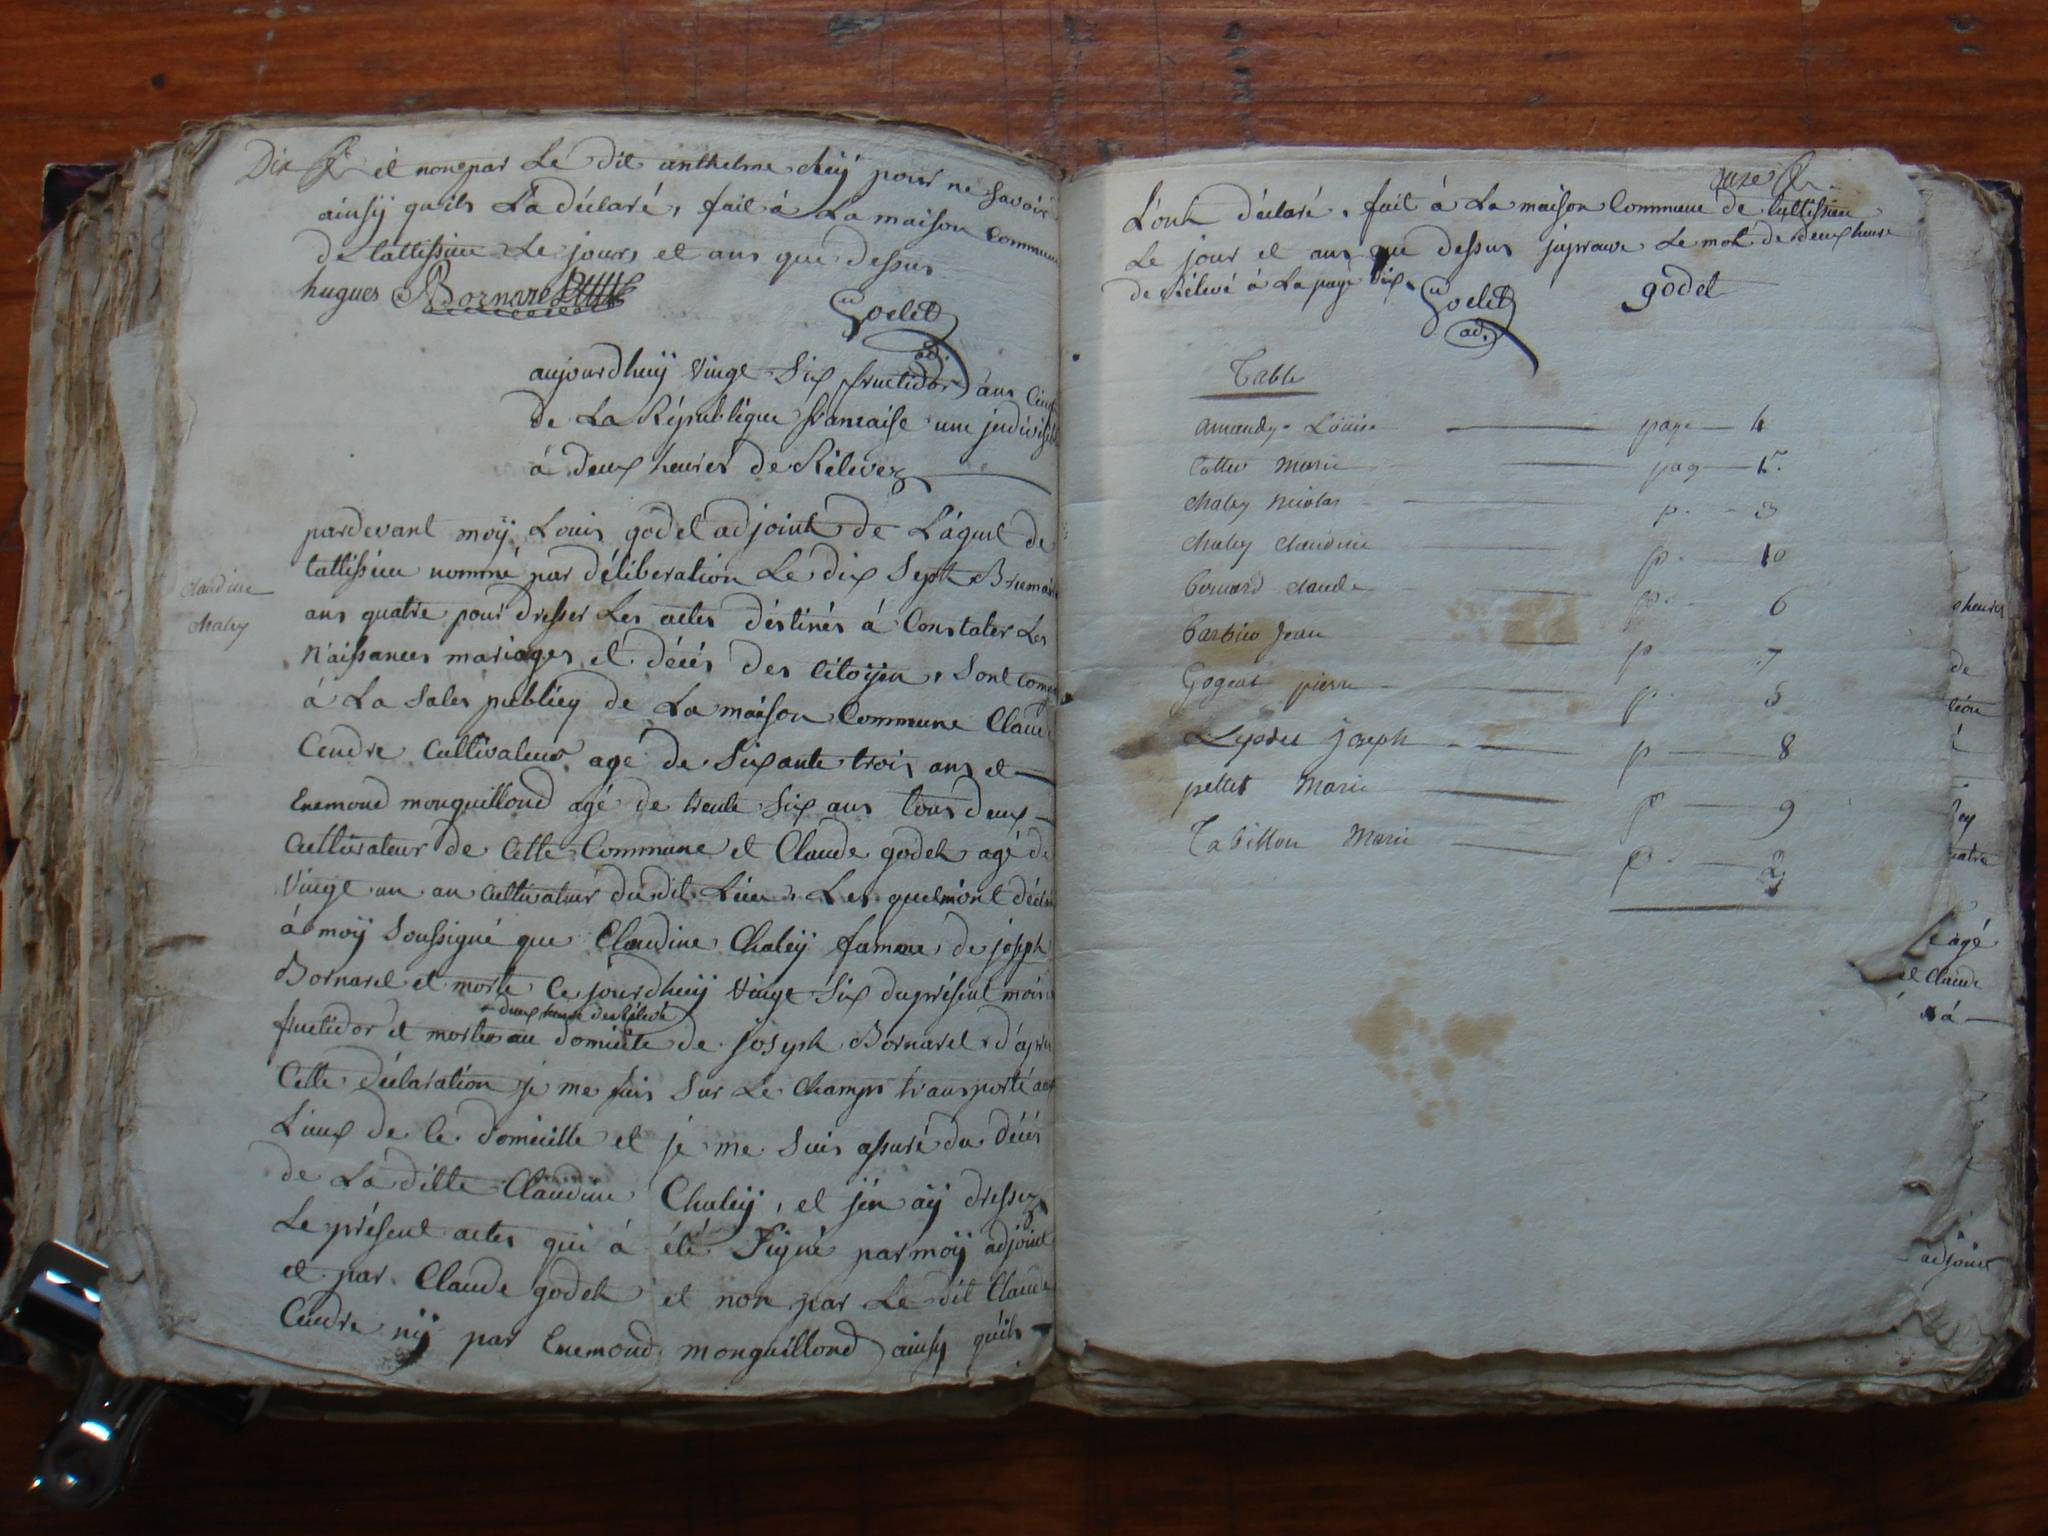 Dix et non par Le dit anthelme chey pour ne savoir
ainsÿ qu'ils L'a déclaré, fait à La maison Commune
de tattissieu Le jours et ans que dessus
hugues Bornarel Godet
adj
aujourdhuÿ vingt Six fructidor ans Cinq
de La République francaise une jndivisible
à deux heures de Rélevez
pardevant moÿ Louis godet adjoint de L'agent de
tattissieu nommé par déliberation Le dix Sept Brumaire
ans quatre pour dresser Les actes déstinés à Constater Les
Naissances mariages et décés des Citoÿen, sont comparu
à La Sales publicq de La maison Commune Claude
Cendre Cultivateur agé de Sixante trois ans et
Enemond monguilloud agé de trente Six ans tous deux
Cultivateur de Cette Commune et Claude godet agé de
vingt un an cultivateur du dit Lieu Les quel m'ont déclaré
à moÿ Soussigné que Claudine Chaleÿ famme de joseph
Bornarel et morte Ce jourdhuÿ vingt Six du présent mois
a deux heure de relevé
fructidor et morte au domicile de joseph Bornarel d'apres
Cette déclaration je me suis Sur Le Champs transporté aux
Lieux de Ce domicille et je me Suis assuré du décés
de La ditte Claudine Chaleÿ, et j'en aÿ dressez
Le présent actes qui à été Signé par moÿ adjoint
et par Claude godet et non par Le dit Claude
Cendre nÿ par Enemond monguilloud ainsÿ qu'ils
Claudine
chaley
onze
L'ont déclaré, fait à La maison Commune de tattissieu
Le jour et ans que dessus japrouve Le mot de deux heure
de Rélevé à La page dix. Godet godet
adj
Table
amandy Louise page 4
Cottier marie pag 1
chaley nicolas p. 3
chaley claudine p 10
Cornard claude p. 6
Barbier Jean p 7
Gogeat pierre p. 5
Lépodie joseph p 8
pettet Marie p 9
Tabillon Marie p 2
heures
de
Le agé
et Claude
à
adjoint